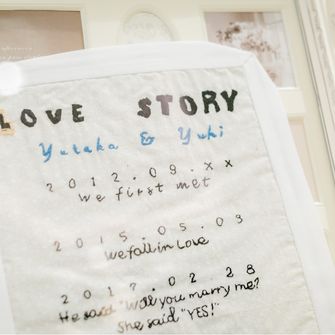 LOVE STORY
Yutaka & Yuki
2012.09.xx
We first met
2015.05.03
We fall in Love
2017.02.28
He said "Will you marry me?
She said "YES!"